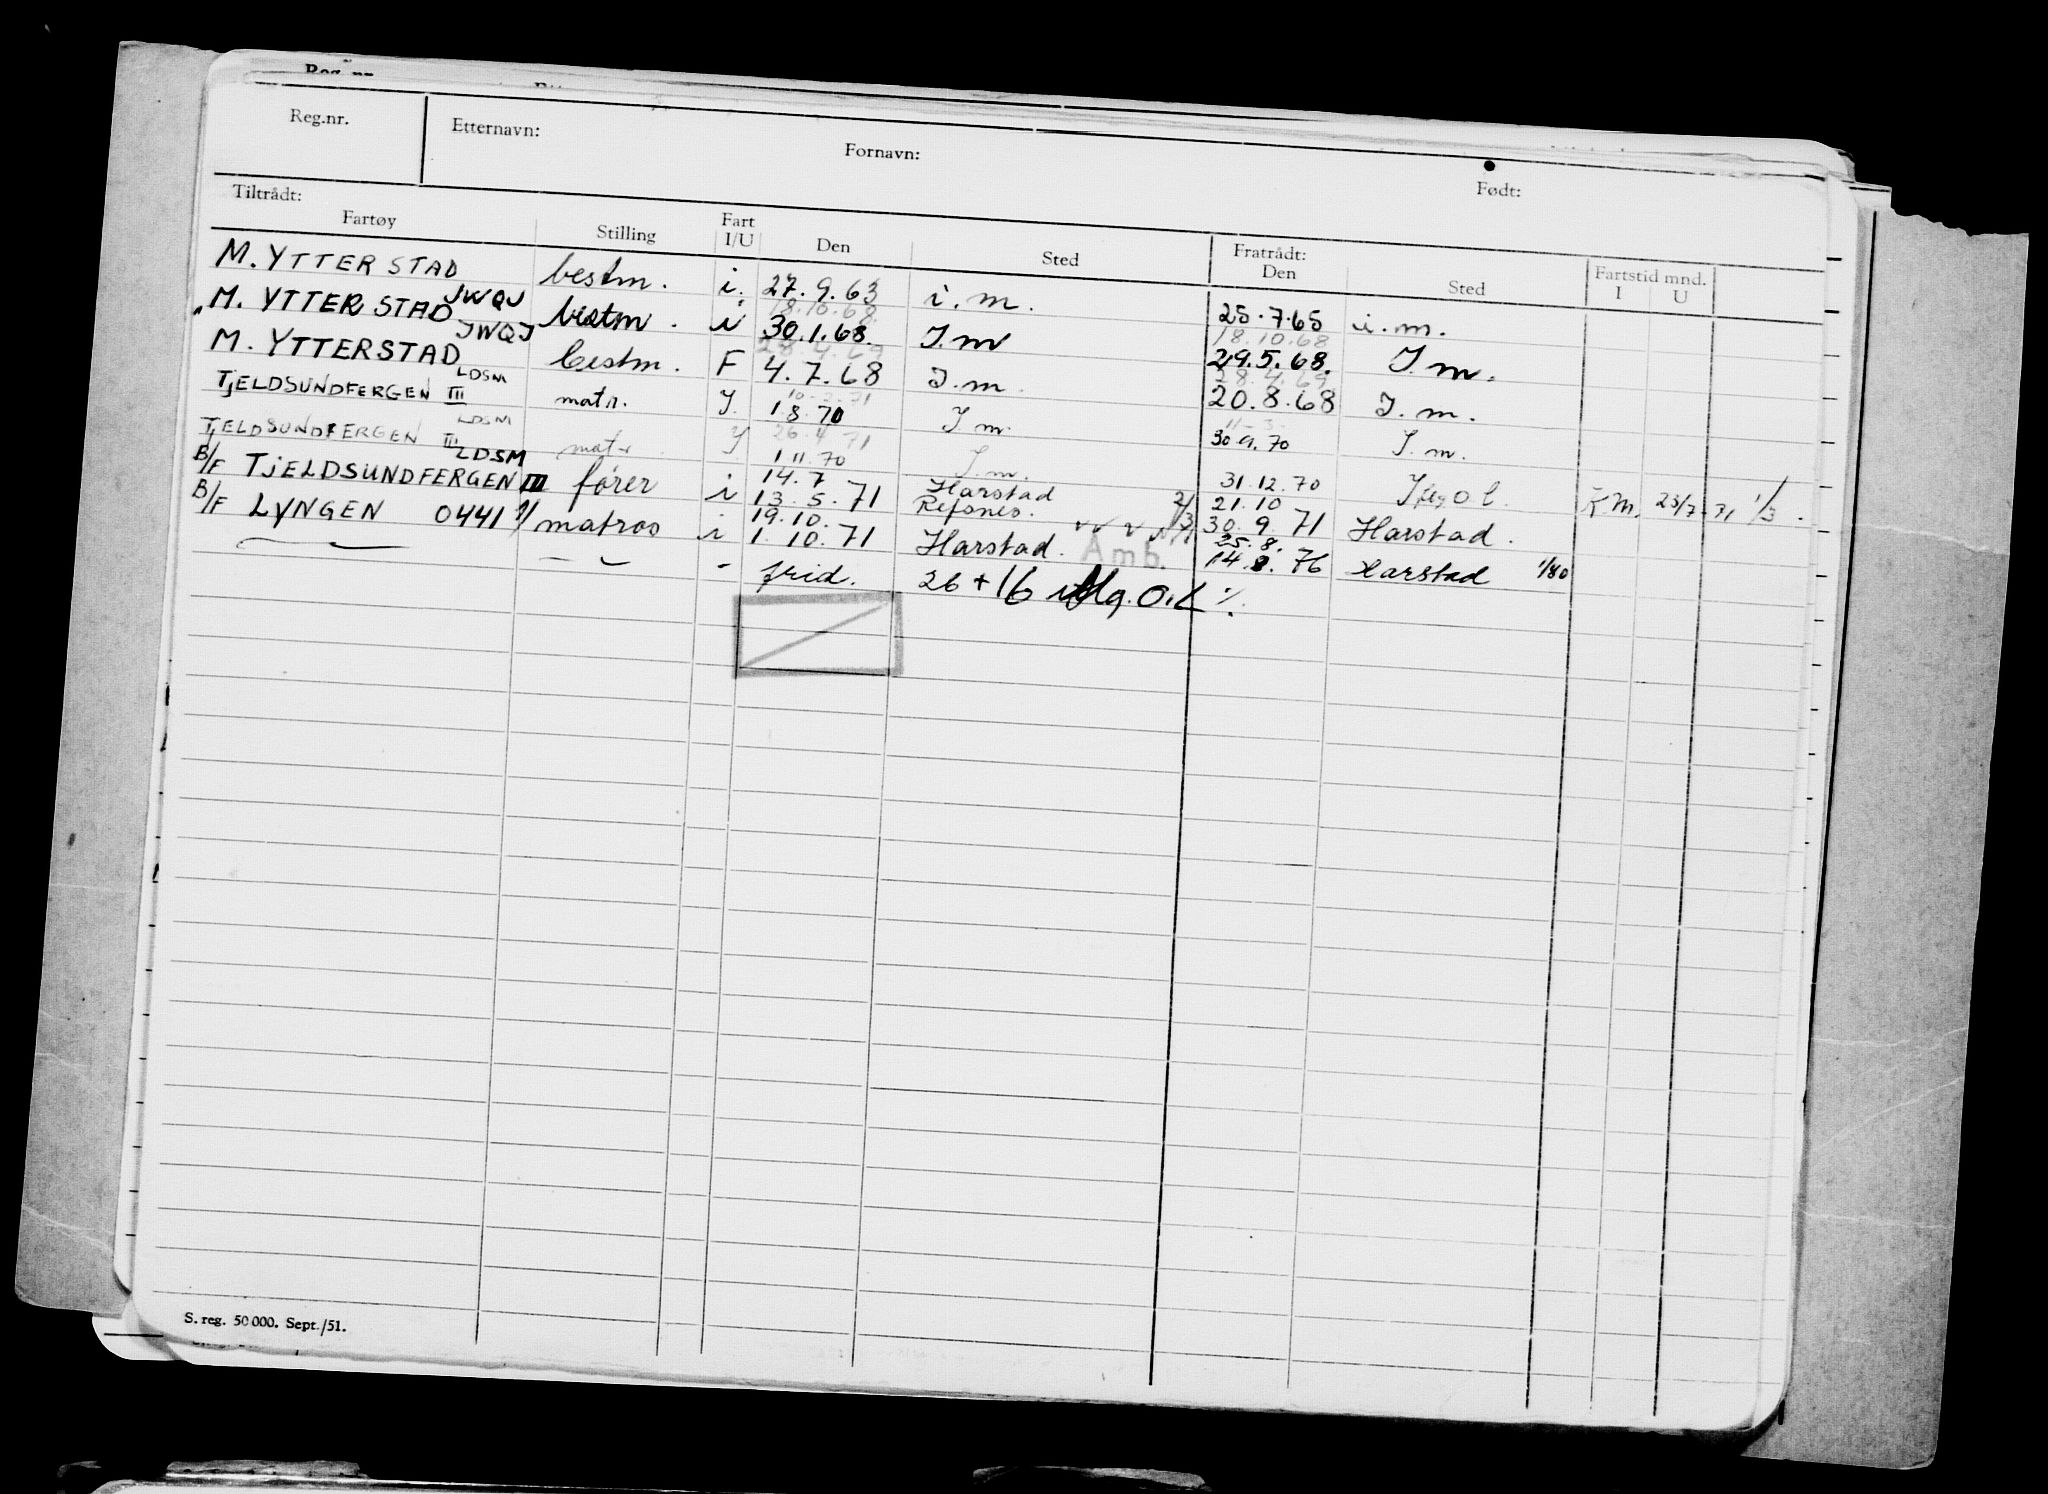 Reg.nr. Etternavn: Fornavn: Født:
Tiltrådt: Fratrådt:
Fartøy Stilling Fart I/U Den Sted Den Sted Fartstid mnd. I U
M. YTTERSTAD bestm. i. 27.9.63 i.m. 25.7.65 i.m.
JWQJ 18.10.68 18.10.68
M. YTTERSTAD bestm. i 30.1.68. I.m 29.5.68. I.m.
JWQJ 28.4.69 28.4.69
M. YTTERSTAD bestm. F 4.7.68 I.m. 20.8.68 I.m.
LDSM 10.2.71 11-3-
TjELDSUNDFERGEN III matr. I. 1 8 70 I m. 30 9. 70 I.m.
LDSM 26.4 71
TjELDSUNDFERGEN III matr. I 1 11 70 I.m. 31.12.70
LDSM 14.7 Harstad 21.10
B/F TjELDSUNDFERGEN III fører i 13.5.71 Refsnes. 30.9.71 Harstad.
19.10. 25.8.
B/F LYNGEN 0441 matros i 1.10.71 Harstad. Amb. 14.8.76 Harstad 1/80
frid. 26+16
S. reg. 50 000. Sept./51.